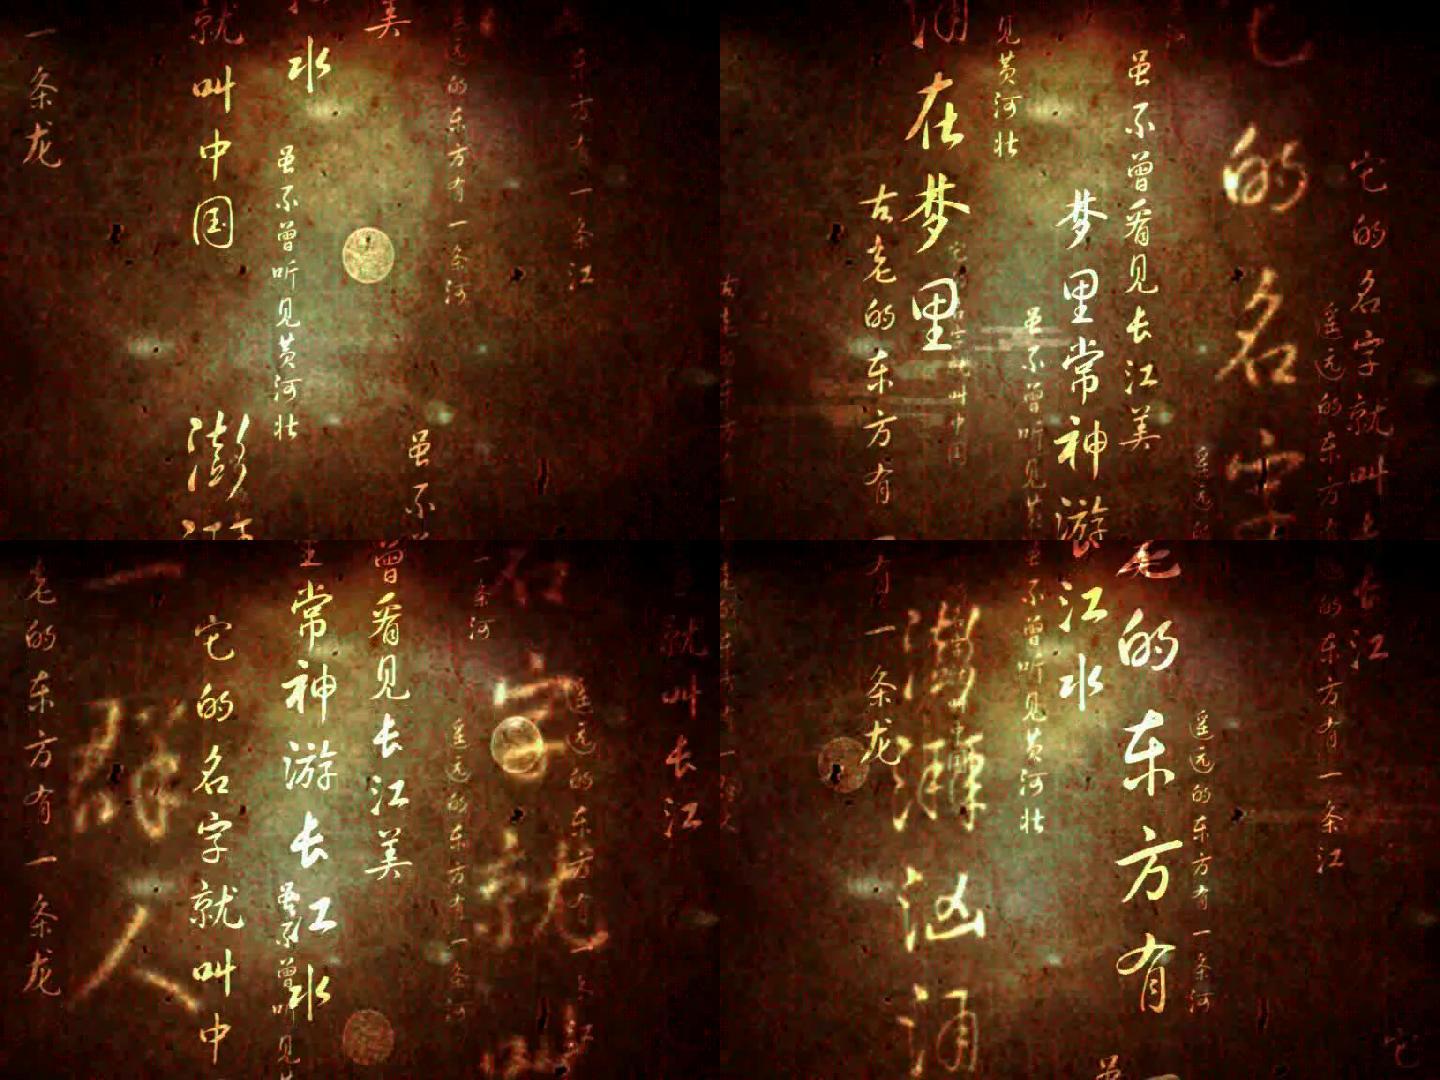 东方有一条江
遥远的东方有一条河
美
虽不
水
虽不曾听见黄河壮
就叫中国
澎
一条龙
它的名字就叫
遥远的东方有
它的名字
遥远的
虽不曾看见长江美
梦里常神游
虽不曾听见
见黄河壮
在梦里
叫中国
古老的东方有一
就叫长江
遥远的东方有一
字就
一条河
遥远的东方有一条河
曾看见长江美
常神游长江水
虽不曾听见
它的名字就叫中
一群人
老的东方有一条龙
长江
的东方有一条江
它
遥远的东方有一条河
老的东方有
虽
江水
虽不曾听见黄河壮
汹涌
有一条龙